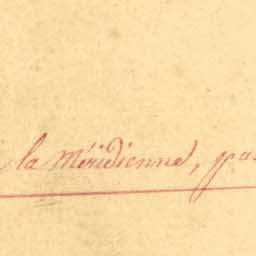 la Méridienne, pa